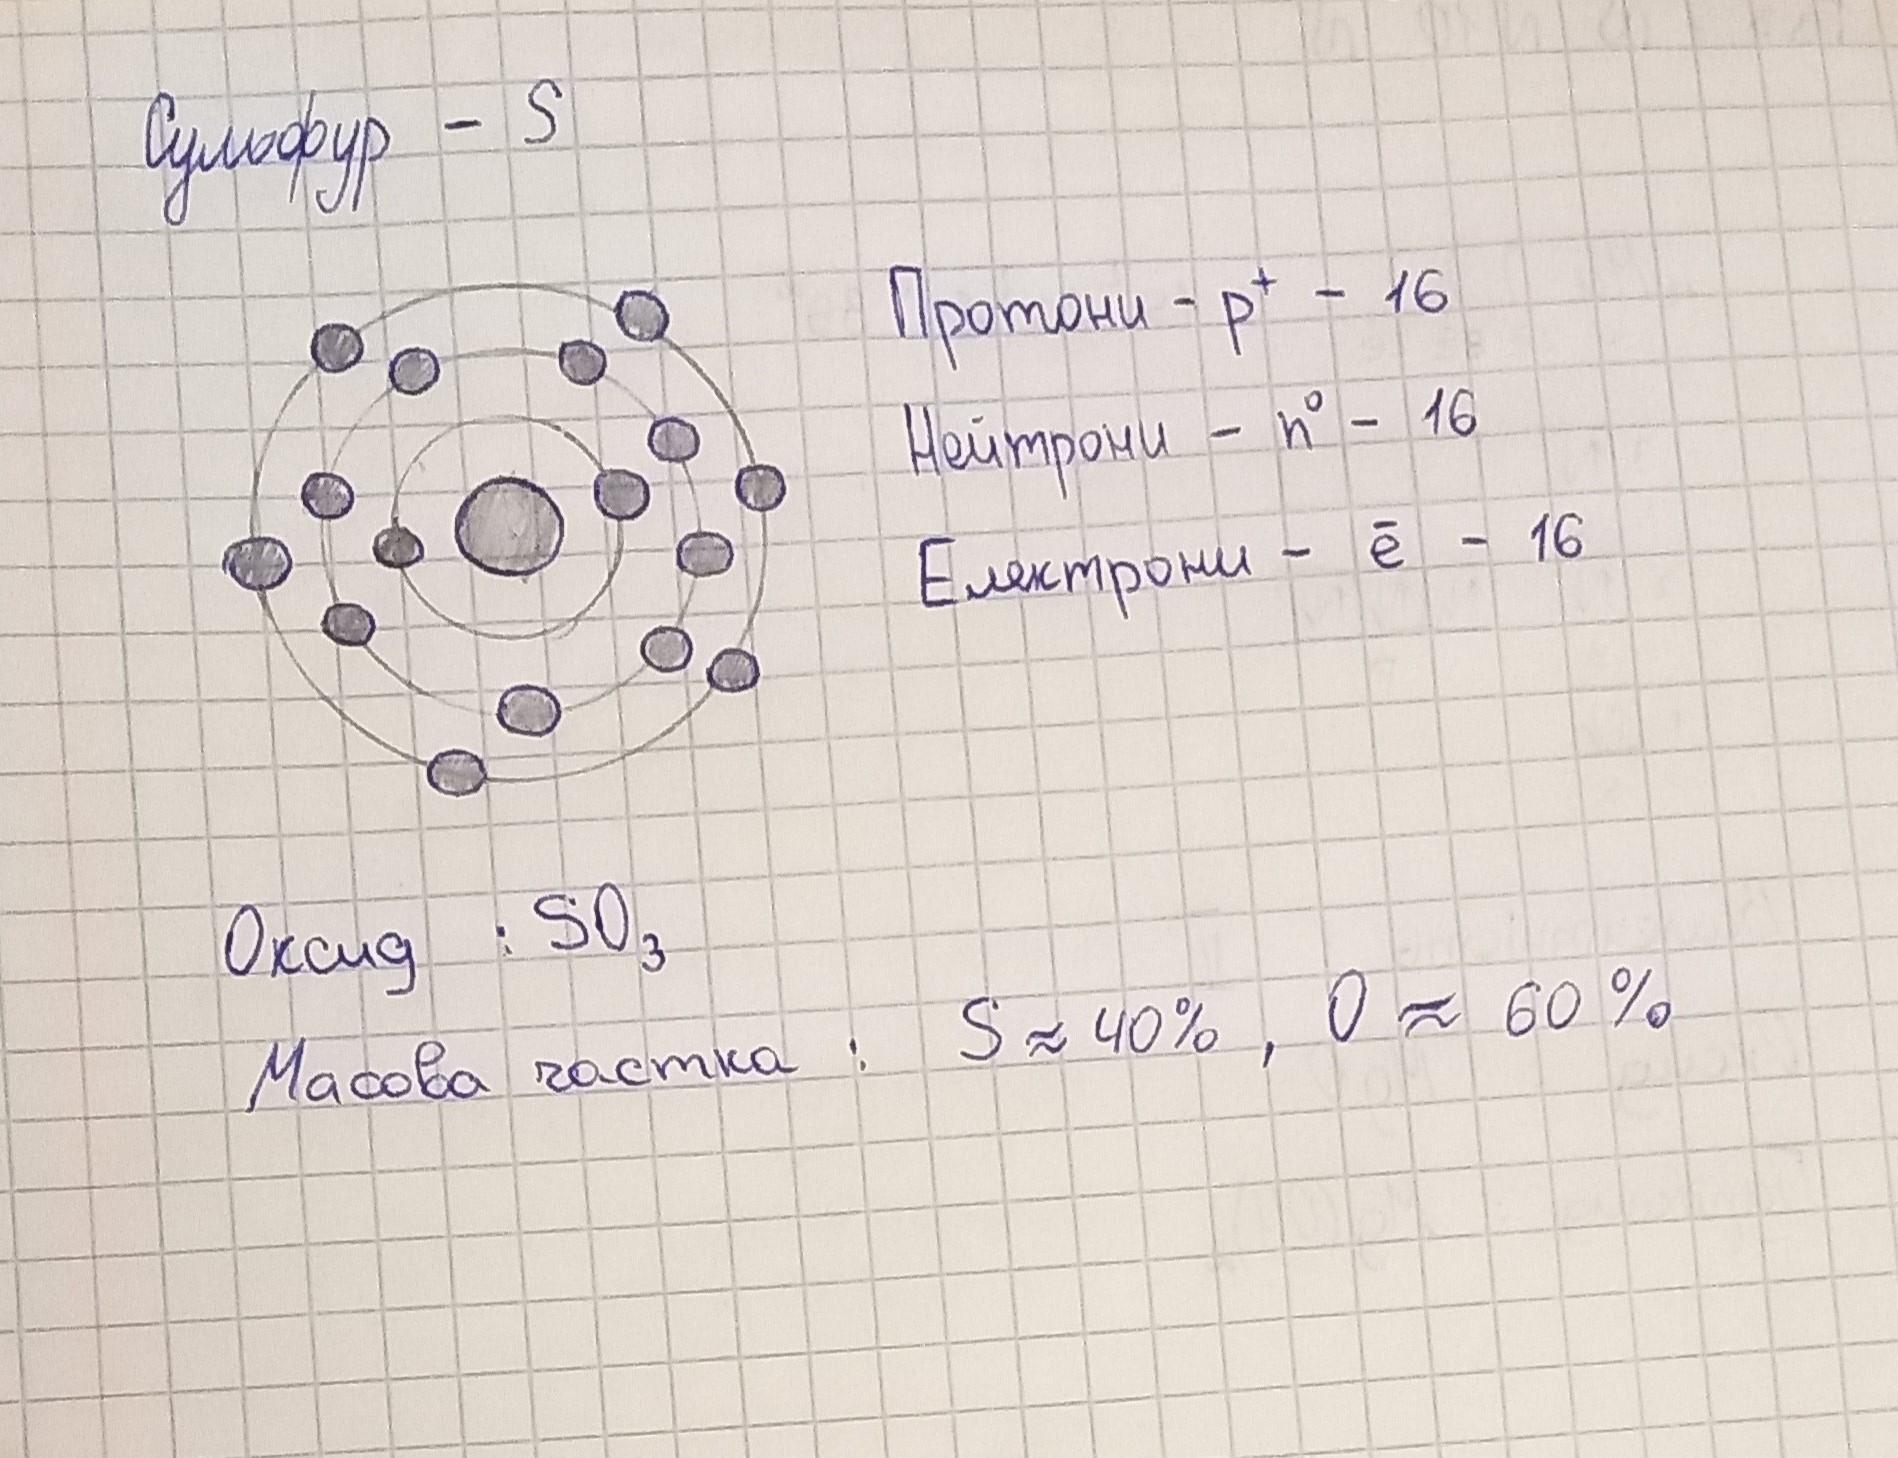 Сульфур – S
Протони – p⁺ – 16
Нейтрони – n⁰ – 16
Електрони – ē – 16
Оксид : SO₃
Масова частка : S ≈ 40% , O ≈ 60%